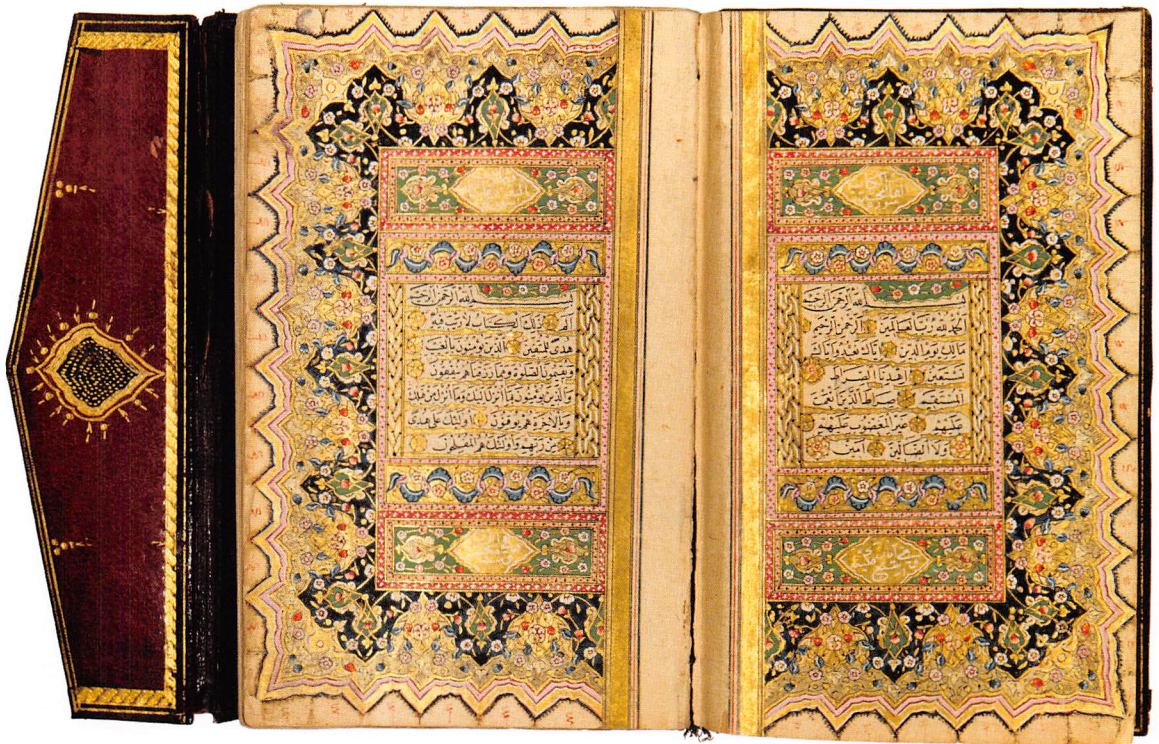 بسم الله الرحمن الرحيم
الحمد لله رب العالمين الرحمن الرحيم
مالك يوم الدين اياك نعبد واياك
نستعين اهدنا الصراط
المستقيم صراط الذين انعمت
عليهم غير المغضوب عليهم
ولا الضالين آمين
بسم الله الرحمن الرحيم
الم ذلك الكتاب لا ريب فيه
هدى للمتقين الذين يؤمنون بالغيب
ويقيمون الصلوة ومما رزقناهم ينفقون
والذين يؤمنون بما انزل اليك وما انزل من قبلك
وبالاخرة هم يوقنون اولئك على هدى
من ربهم واولئك هم المفلحون